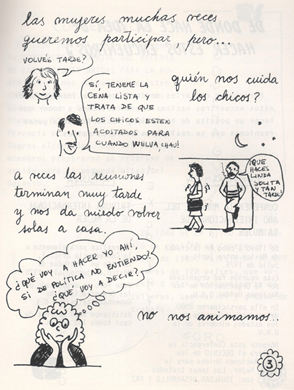 las mujeres muchas veces
queremos participar, pero...
VOLVES TARDE?
SÍ, TENEME LA
CENA LISTA Y
TRATA DE QUE
LOS CHICOS ESTEN
ACOSTADOS PARA
CUANDO VUELVA CHAU!
quién nos cuida
los chicos?
a veces las reuniones
terminan muy tarde
y nos da miedo volver
solas a casa.
¡QUE
HACES
LINDA
SOLITA
Y TAN
TARDE!
¿QUÉ VOY A HACER YO AHÍ,
SI DE POLÍTICA NO ENTIENDO?
¿QUÉ VOY A DECIR?
no nos animamos..
3